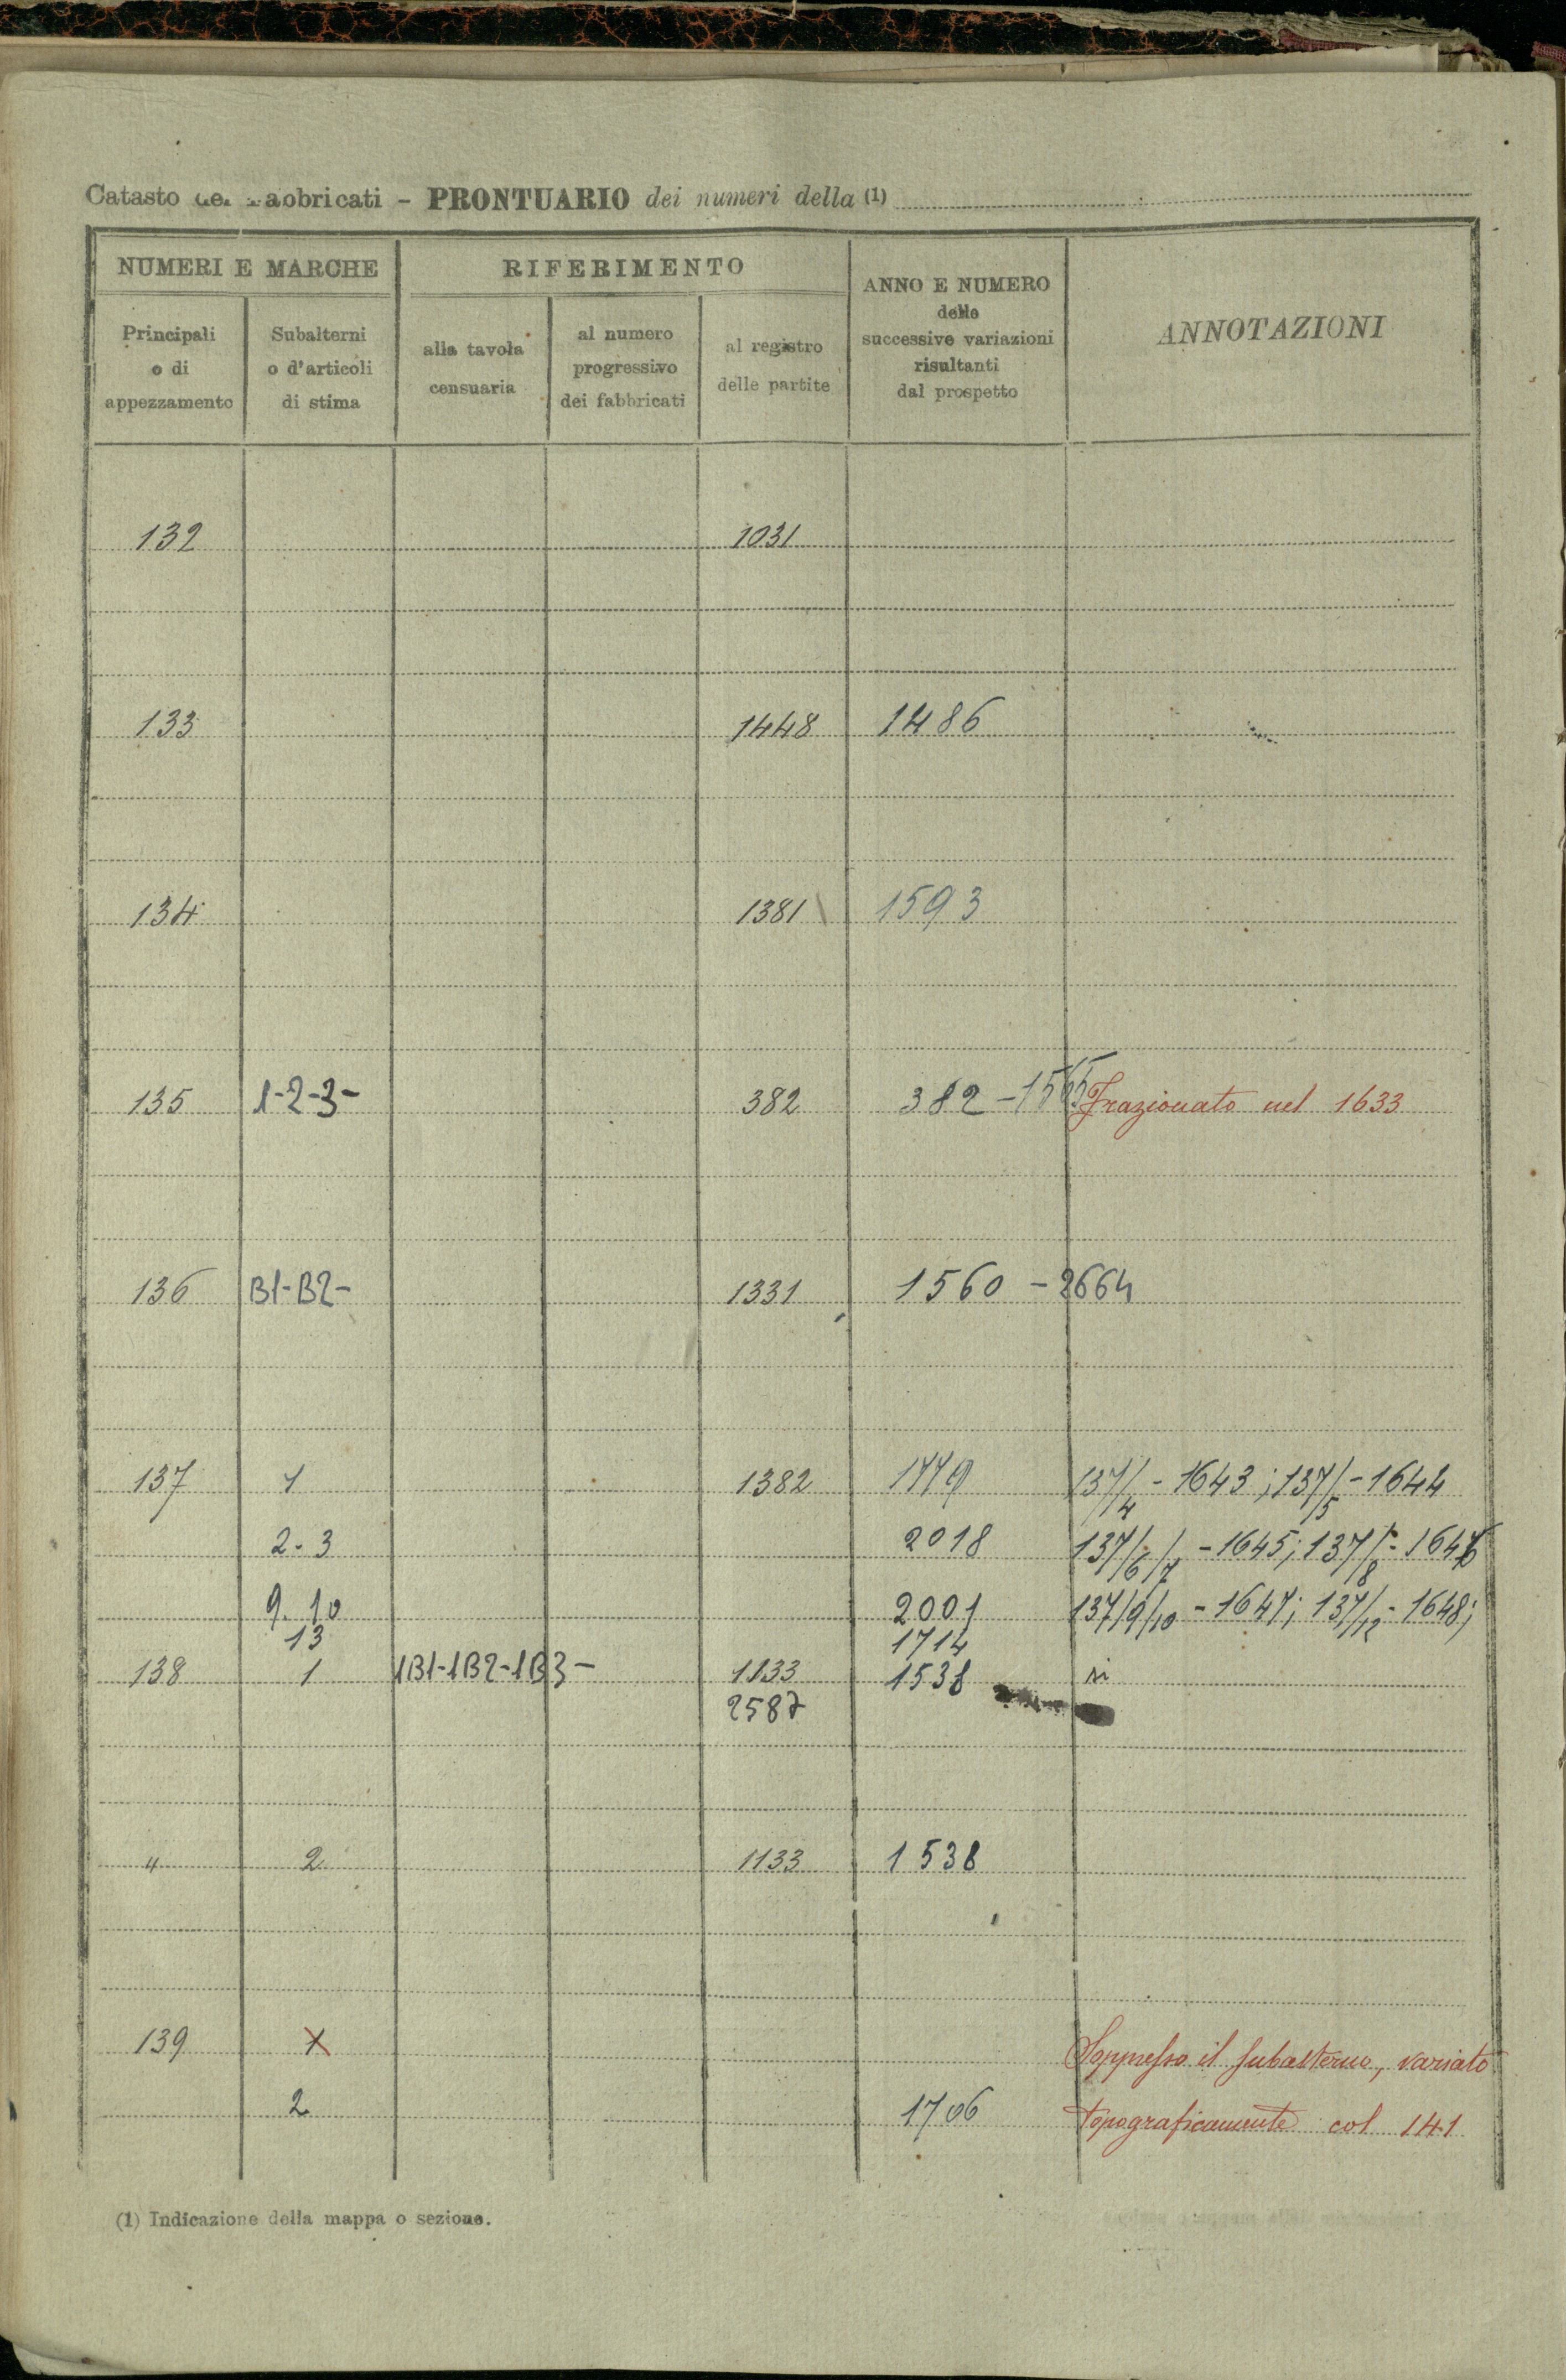 Catasto dei Fabbricati - PRONTUARIO dei numeri della (1)
NUMERI E MARCHE
RIFERIMENTO
ANNO E NUMERO
delle
successive variazioni
risultanti
dal prospetto
ANNOTAZIONI
Principali
o di
appezzamento
Subalterni
o d'articoli
di stima
alla tavola
censuaria
al numero
progressivo
dei fabbricati
al registro
delle partite
132 1031
133 1448 1486
134 1381 1593
135 1-2-3- 382 382 - 1565 Frazionato nel 1633
136 B1-B2- 1331 1560 - 2664
137 1 1382 1779 137/4 - 1643; 137/5 - 1644
2-3 2018 137/6/7 - 1645; 137/8 - 1646
9. 10 2001 137/9/10 - 1647; 137/12 - 1648;
13 1714
138 1 1B1-1B2-1B3- 1133 1538 si
2587
" 2 1133 1538
139 1 Soppresso il subalterno, variato
2 1706 topograficamente col 141
(1) Indicazione della mappa o sezione.